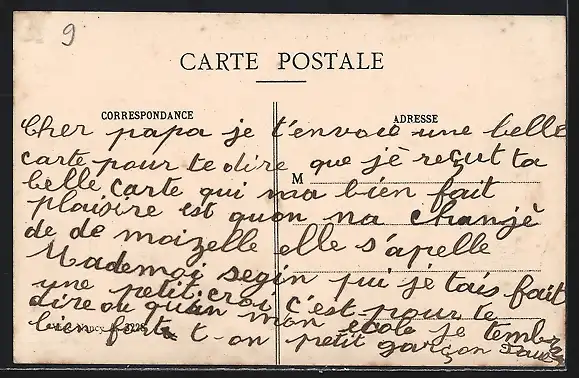 9
CARTE POSTALE
CORRESPONDANCE
ADRESSE
M
Cher papa je t'envoie une belle
carte pour te dire que jè reçut ta
belle carte qui ma bien fait
plaisire est quon na chanjè
de de moizelle elle s'apelle
Mademoi segin pui je tais fait
une petit croi c'est pour te
dire ou quan mon école je temb
bien fort t-on petit garçon
Nancy 3228